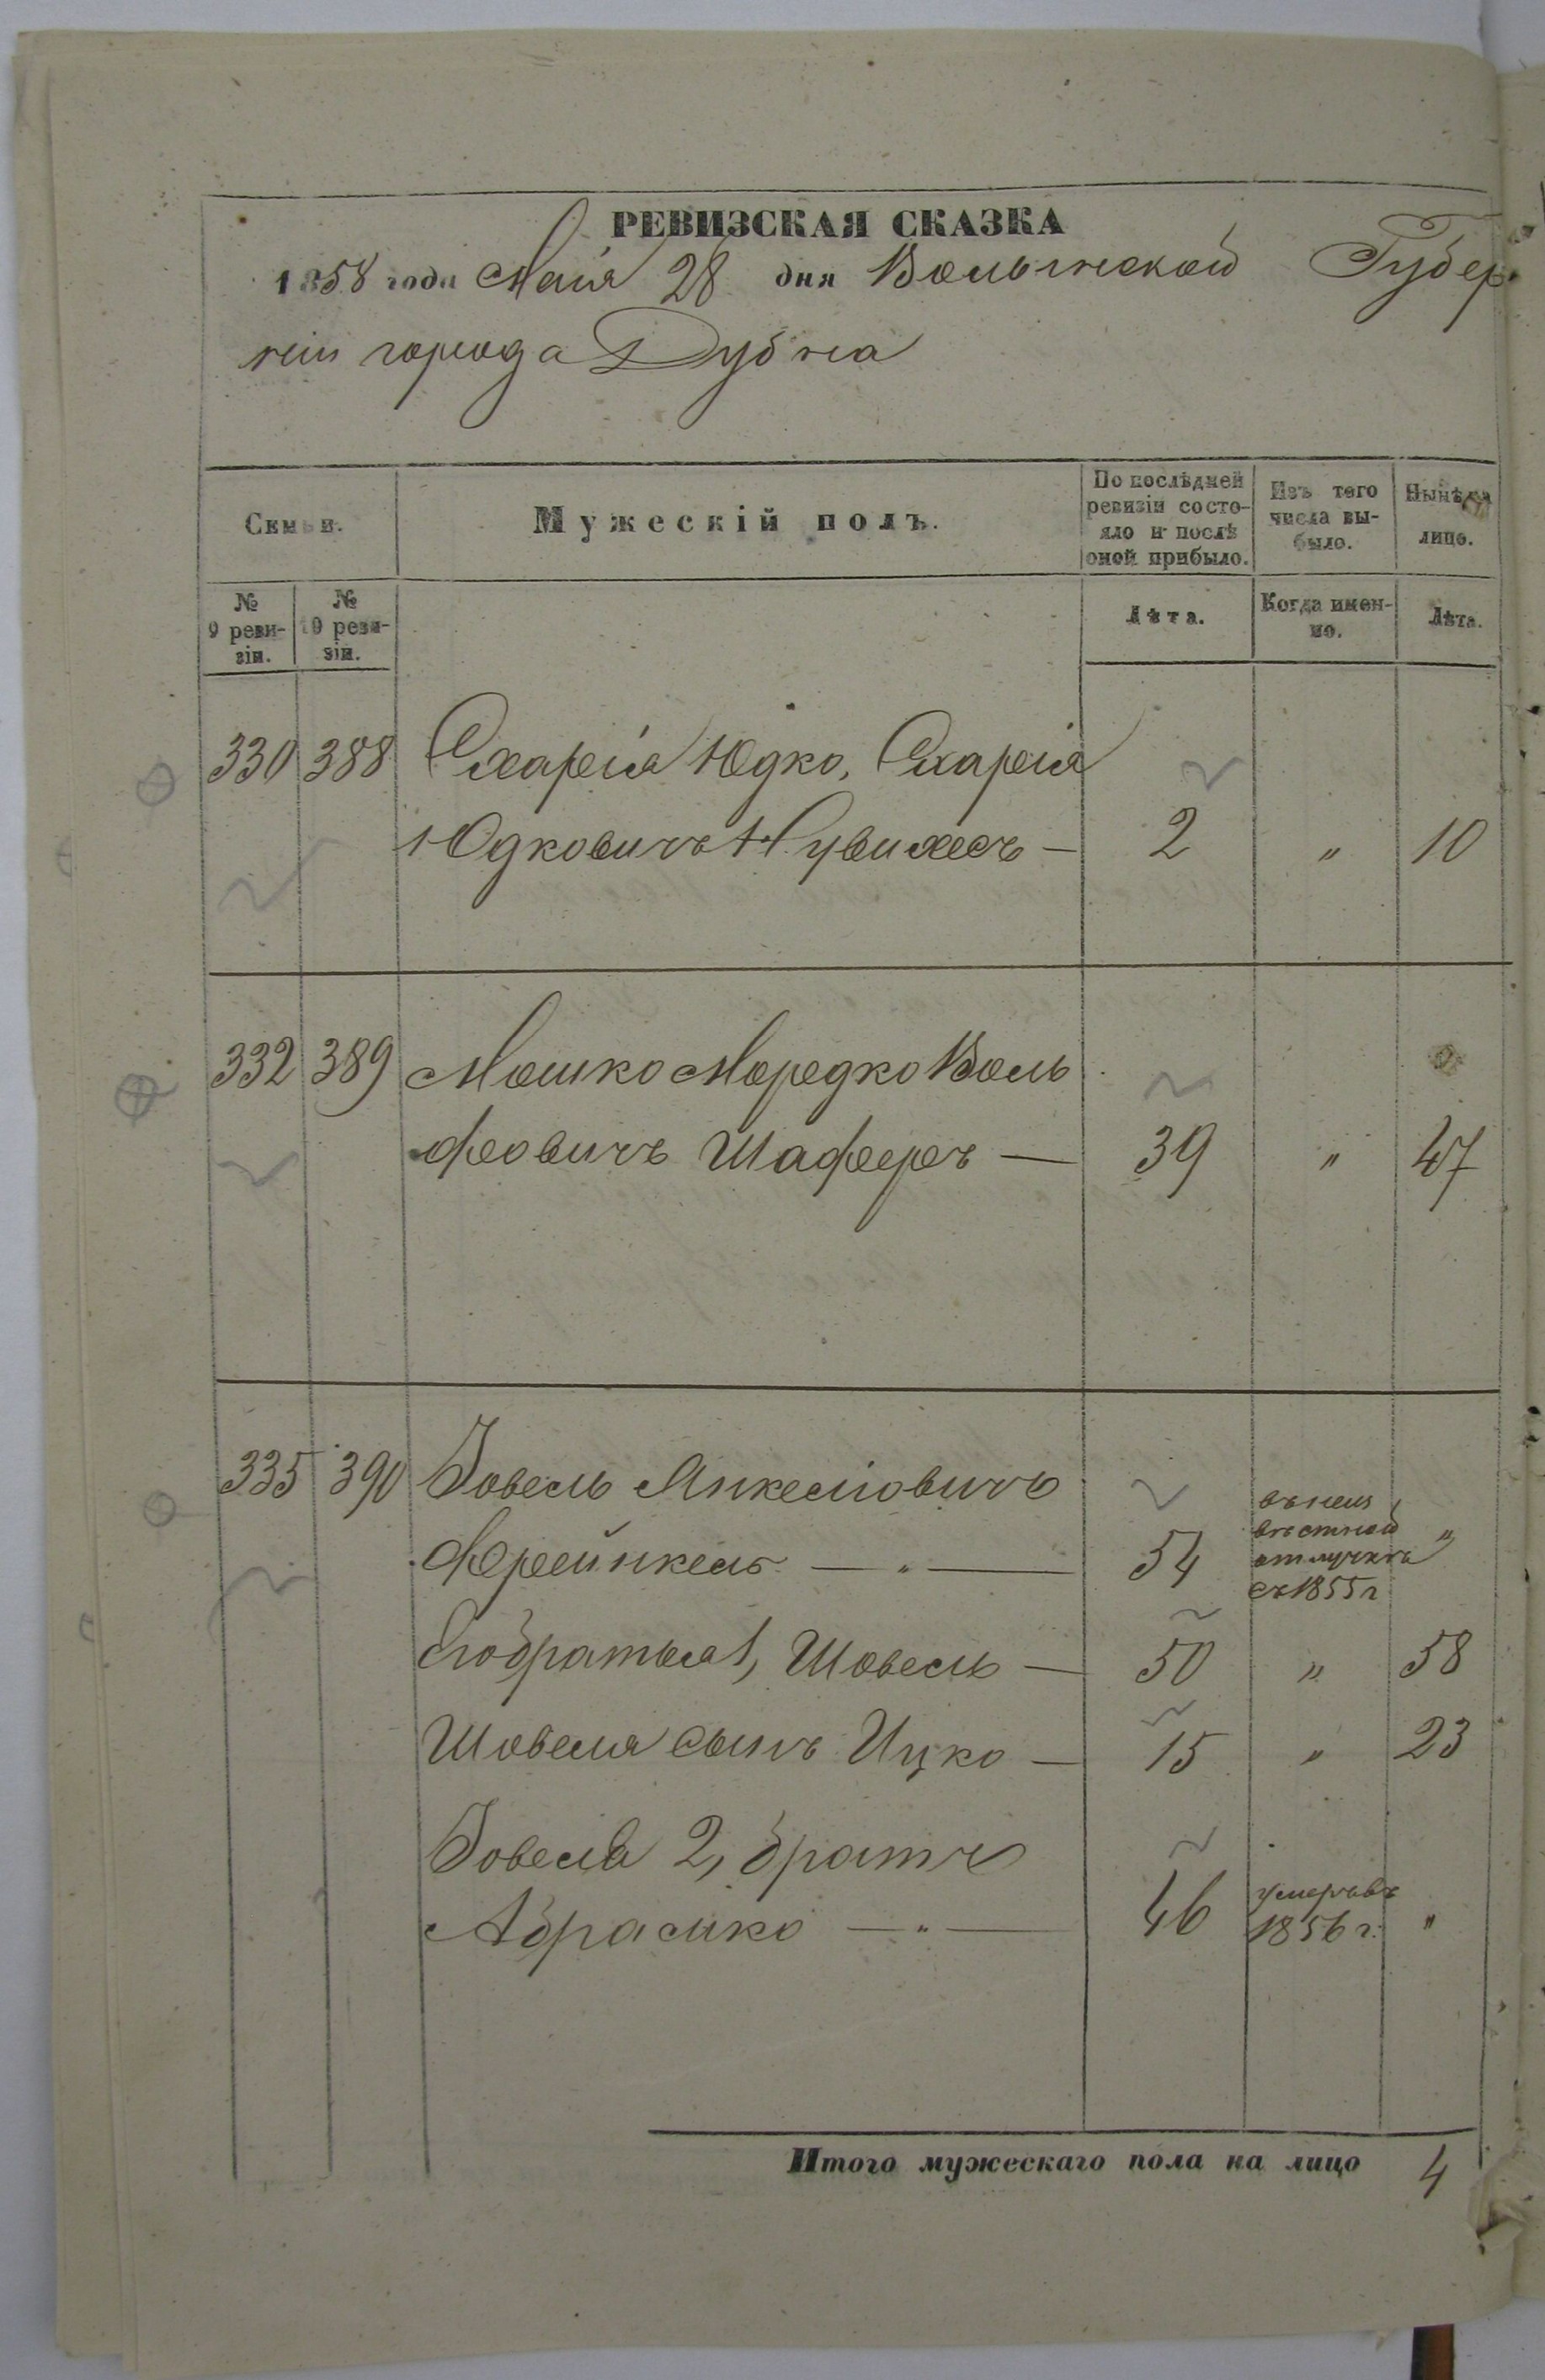 РЕВИЗСКАЯ СКАЗКА
1858 года Мая 28 дня Волынской Губер
ніи города Дубна
Семьи.
Мужескій полъ.
По послѣдней ревизіи состо-
яло и послѣ оной прибыло.
Изъ того числа вы-
было.
Нынѣ на лицо.
№ 9 реви-
зіи.
№ 10 реви-
зіи.
Лѣта.
Когда имен-
но.
Лѣта.
330 388 Схарія Юдко, Схарія
Юдковичъ 2 „ 10
332 389 Мошко Мордко Воль
фовичъ Шаферъ — 39 „ 47
335 390 Іовель Янкелiовичъ
Френкель — „ — 54 въ неиз
вѣстной
отлучкѣ
съ 1855 г „
Его братья 1, Шовель — 50 „ 58
Шовеля сынъ Ицко — 15 „ 23
Іовеля 2, братъ
Абрамко — „ — 46 умеръ въ
1856 г. „
Итого мужескаго пола на лицо 4